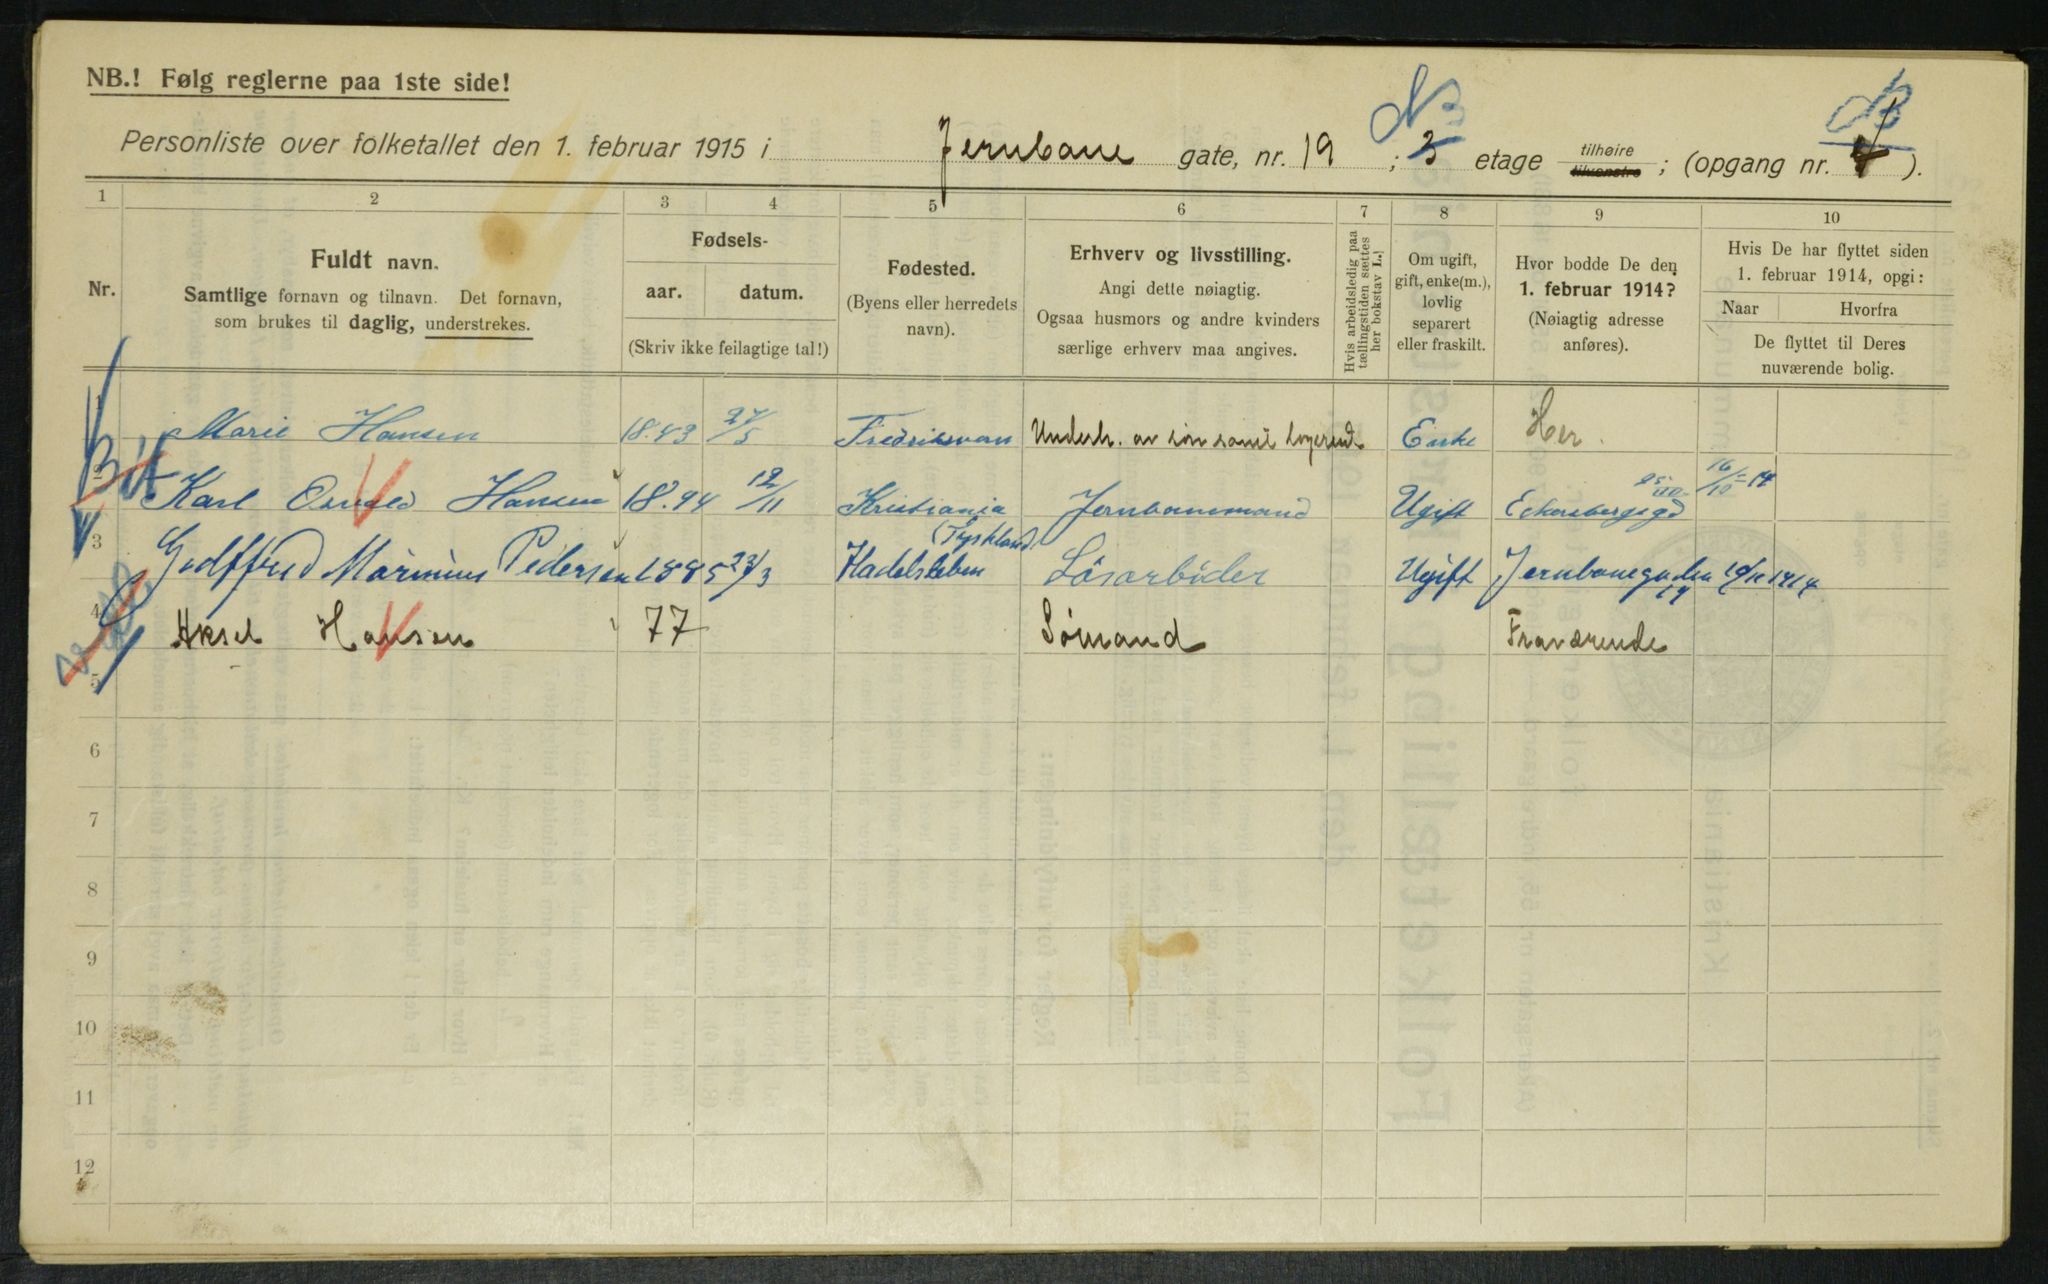 NB.! Følg reglerne paa 1ste side!
Personliste over folketallet den 1. februar 1915 i Jernbane gate, nr. 19 ; 3 etage tilhøire tilvenstre ; (opgang nr. ).
1 2 3 4 5 6 7 8 9 10
Nr.
Fuldt navn.
Samtlige fornavn og tilnavn. Det fornavn,
som brukes til daglig, understrekes.
Fødsels-
aar. datum.
(Skriv ikke feilagtige tal!)
Fødested.
(Byens eller herredets
navn).
Erhverv og livsstilling.
Angi dette nøiagtig.
Ogsaa husmors og andre kvinders
særlige erhverv maa angives.
Hvis arbeidsledig paa
tællingstiden sættes
her bokstav L.!
Om ugift,
gift, enke(m.),
lovlig
separert
eller fraskilt.
Hvor bodde De den
1. februar 1914?
(Nøiagtig adresse
anføres).
Hvis De har flyttet siden
1. februar 1914, opgi:
Naar Hvorfra
De flyttet til Deres
nuværende bolig.
1 Marie Hansen 18.43 27/5 Underh. av søn samt logerende Enke Her.
2 Karl Hansen 18.94 12/11 Kristiania Jernbanemand Ugift Eckersbergsgd 16/10-14
(Tyskland)
3 Godtfred Marinius Pedersen 1885 23/3 Hadelsleben Løsarbeider Ugift Jernbanegaden 19 1914
4 Aksel Hansen 77 Sømand Fraværende
5
6
7
8
9
10
11
12